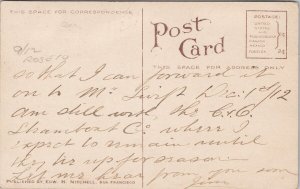 THIS SPACE FOR CORRESPONDENCE
Post Card
THIS SPACE FOR ADDRESS ONLY
POSTAGE:
UNITED STATES
9/12
so that I can forward it
on to Mr Swift Dec. 1st/12
am still with the C. & O.
Steamboat Co where I
expect to remain until
they tie up for season
Let me hear from you soon
PUBLISHED BY EDW. H. MITCHELL, SAN FRANCISCO